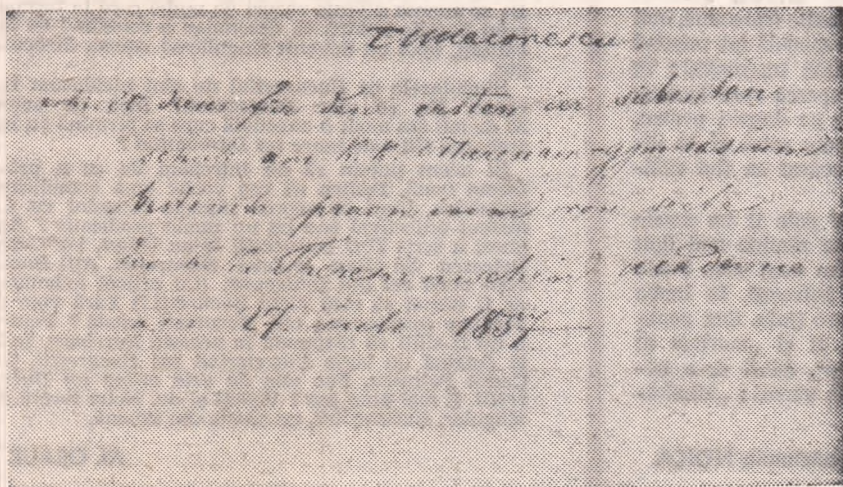 T. Maiorescu
erhielt dieses für den ersten der siebenten
schule am k.k. Theresian-gymnasium
bestimmte praemium von seite
der k.k. Theresianischen academie
am 27. juli 1857